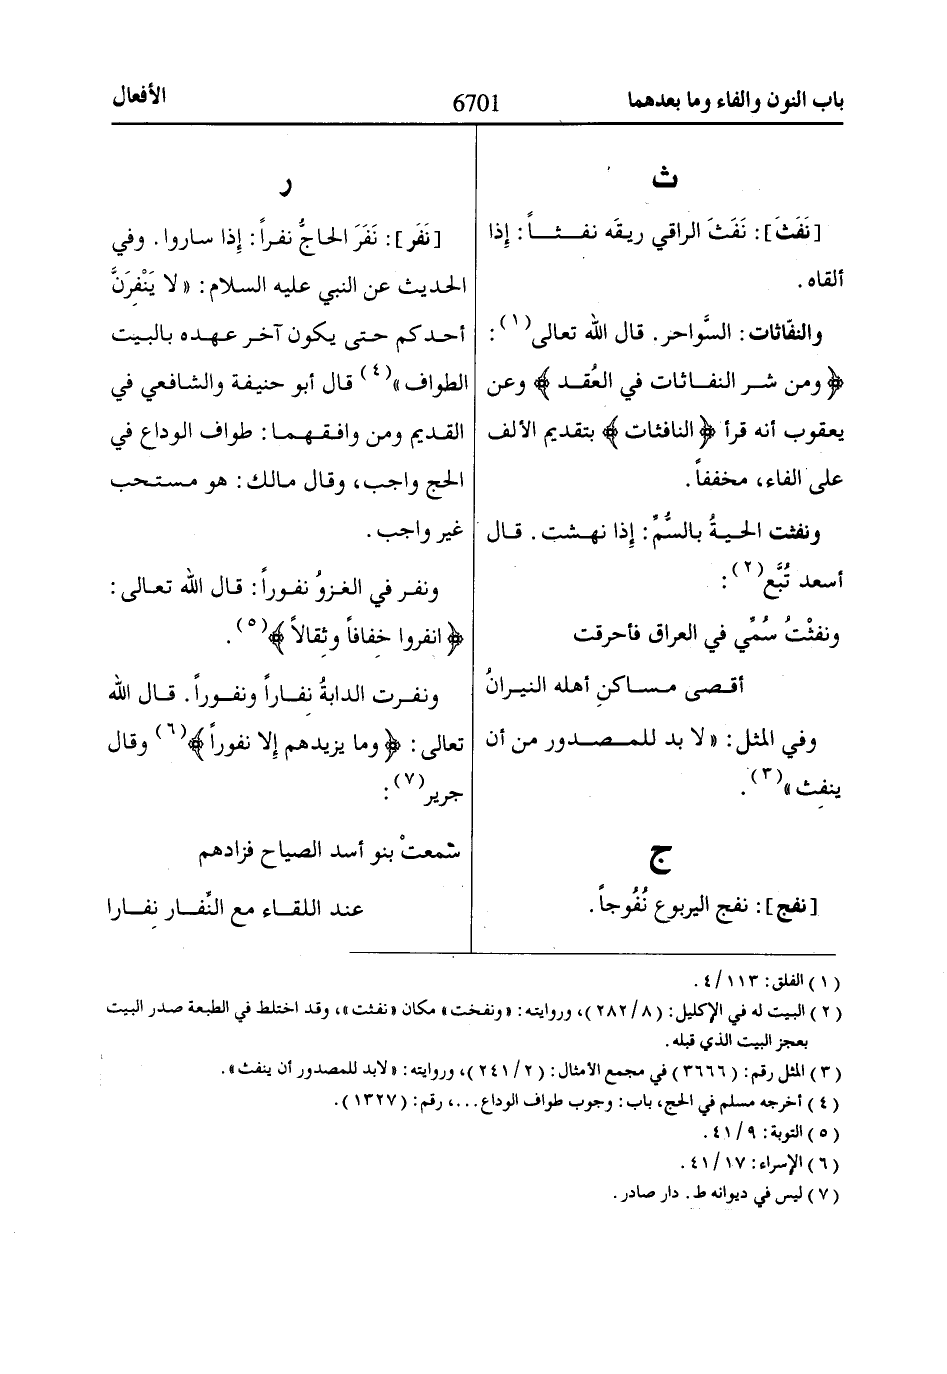 باب النون والفاء وما بعدهما
6701
الأفعال
ث
[نَفَثَ]: نَفَثَ الراقي ريقَه نفـثـاً: إذا
ألقاه.
والنفّاثات: السَّواحر. قال الله تعالى(١):
﴿ومن شر النفـاثات في العُقد﴾ وعن
يعقوب أنه قرأ ﴿النافثات﴾ بتقديم الألف
على الفاء، مخففاً.
ونفثت الحيةُ بالسُّمِّ: إذا نهشت. قال
أسعد تُبَّع(٢):
ونفثْتُ سُمِّي في العراق فأحرقت
أقصى مساكنِ أهله النيرانُ
وفي المثل: «لا بد للمصدور من أن
ينفِث»(٣).
ج
[نفج]: نفج اليربوع نُفُوجاً.
ر
[نَفَر]: نَفَرَ الحاجُّ نفراً: إذا ساروا. وفي
الحديث عن النبي عليه السلام: «لا يَنْفِرَنَّ
أحدكم حتى يكون آخر عهده بالبيت
الطواف»(٤) قال أبو حنيفة والشافعي في
القديم ومن وافقهما: طواف الوداع في
الحج واجب، وقال مالك: هو مستحب
غير واجب.
ونفر في الغزوُ نفوراً: قال الله تعالى:
﴿انفروا خِفافاً وثِقالاً﴾(٥).
ونفرت الدابةُ نِفاراً ونفوراً. قال الله
تعالى: ﴿وما يزيدهم إلا نفوراً﴾(٦) وقال
جرير(٧):
شمعتْ بنو أسد الصياح فزادهم
عند اللقاء مع النُّفار نِفارا
(١) الفلق: ٤/١١٣.
(٢) البيت له في الإكليل: (٢٨٢/٨)، وروايته: «ونفخت» مكان «نفثت»، وقد اختلط في الطبعة صدر البيت
بعجز البيت الذي قبله.
(٣) المثل رقم: (٣٦٦٦) في مجمع الأمثال: (٢٤١/٢)، وروايته: «لابد للمصدور أن ينفث».
(٤) أخرجه مسلم في الحج، باب: وجوب طواف الوداع ...، رقم: (١٣٢٧).
(٥) التوبة: ٤١/٩.
(٦) الإسراء: ٤١/١٧.
(٧) ليس في ديوانه ط. دار صادر.